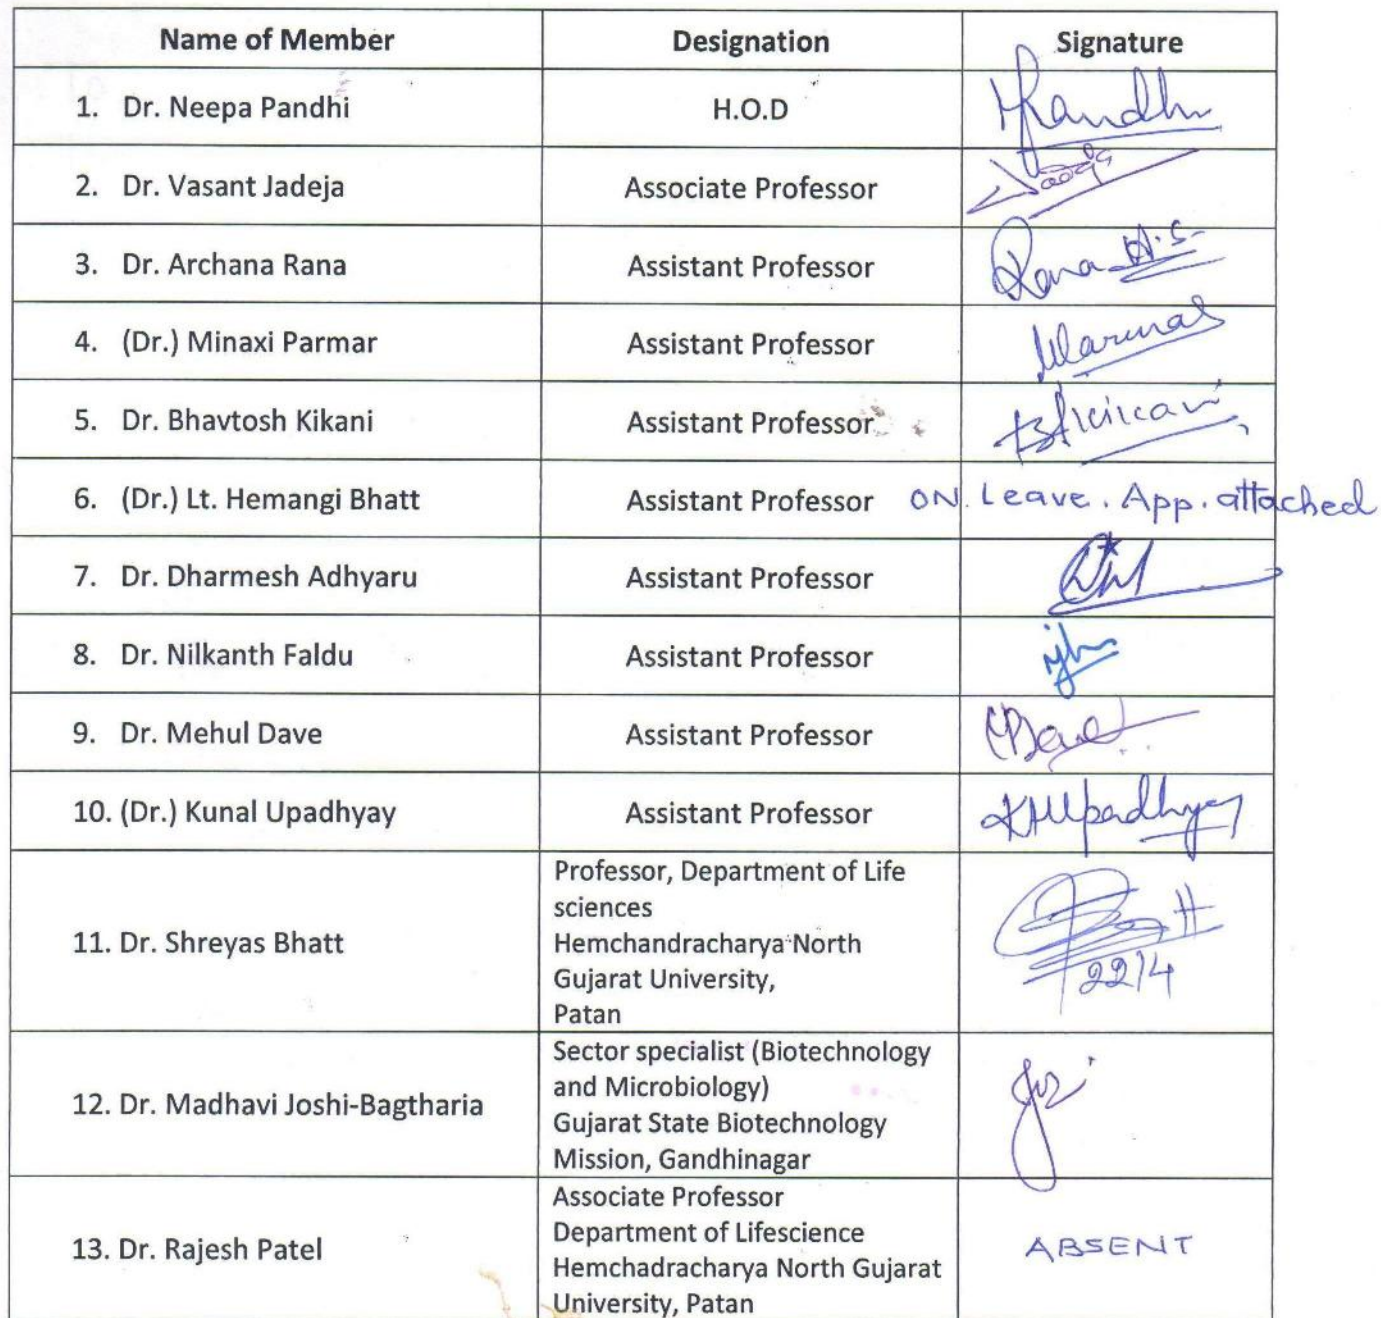 Name of Member Designation Signature
1. Dr. Neepa Pandhi H.O.D
2. Dr. Vasant Jadeja Associate Professor
3. Dr. Archana Rana Assistant Professor Rana H.S.
4. (Dr.) Minaxi Parmar Assistant Professor
5. Dr. Bhavtosh Kikani Assistant Professor
6. (Dr.) Lt. Hemangi Bhatt Assistant Professor ON Leave. App. attached
7. Dr. Dharmesh Adhyaru Assistant Professor
8. Dr. Nilkanth Faldu Assistant Professor
9. Dr. Mehul Dave Assistant Professor
10. (Dr.) Kunal Upadhyay Assistant Professor KHUpadhyay
11. Dr. Shreyas Bhatt
Professor, Department of Life
sciences
Hemchandracharya North
Gujarat University,
Patan
22/4
12. Dr. Madhavi Joshi-Bagtharia
Sector specialist (Biotechnology
and Microbiology)
Gujarat State Biotechnology
Mission, Gandhinagar
13. Dr. Rajesh Patel
Associate Professor
Department of Lifescience
Hemchadracharya North Gujarat
University, Patan
ABSENT